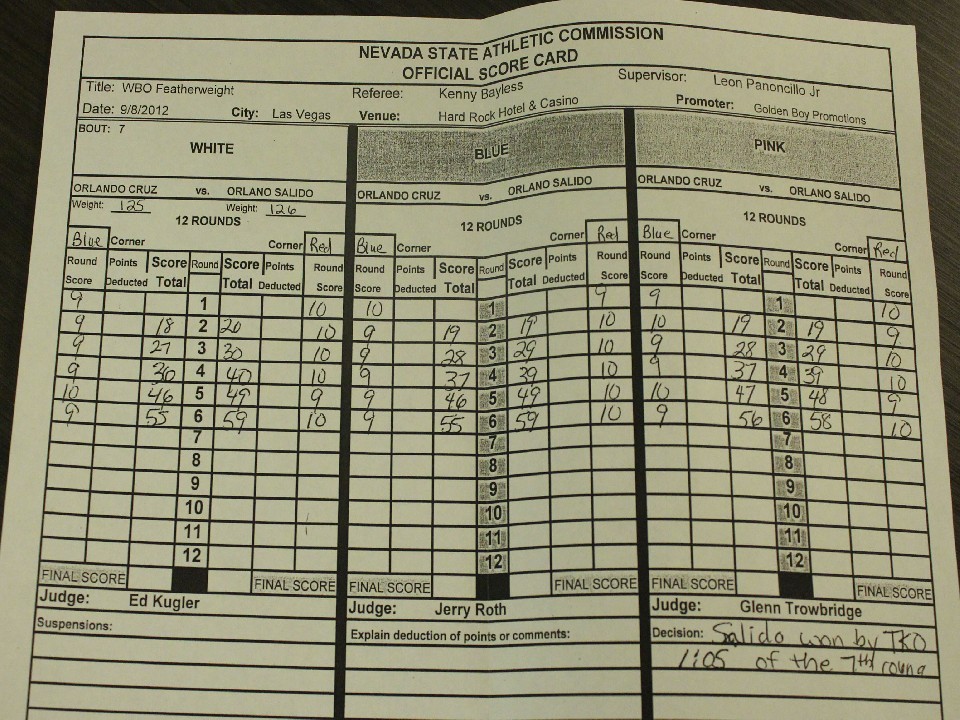 NEVADA STATE ATHLETIC COMMISSION
OFFICIAL SCORE CARD
Title: WBO Featherweight Referee: Kenny Bayless Supervisor: Leon Panoncillo Jr
Date: 9/8/2012 City: Las Vegas Venue: Hard Rock Hotel & Casino Promoter: Golden Boy Promotions
BOUT: 7
WHITE BLUE PINK
ORLANDO CRUZ vs. ORLANO SALIDO ORLANDO CRUZ vs. ORLANO SALIDO ORLANDO CRUZ vs. ORLANO SALIDO
Weight: 125 Weight: 126
12 ROUNDS 12 ROUNDS 12 ROUNDS
Blue Corner Corner Red Blue Corner Corner Red Blue Corner Corner Red
Round Points Score Round Score Points Round Round Points Score Round Score Points Round Round Points Score Round Score Points Round
Score Deducted Total Total Deducted Score Score Deducted Total Total Deducted Score Score Deducted Total Total Deducted Score
9 1 10 10 1 9 9 1 10
9 18 2 20 10 9 19 2 19 10 10 19 2 19 9
9 27 3 30 10 9 28 3 29 10 9 28 3 29 10
9 36 4 40 10 9 37 4 39 10 9 37 4 39 10
10 46 5 49 9 9 46 5 49 10 10 47 5 48 9
9 55 6 59 10 9 55 6 59 10 9 56 6 58 10
7 7 7
8 8 8
9 9 9
10 10 10
11 11 11
12 12 12
FINAL SCORE FINAL SCORE FINAL SCORE FINAL SCORE FINAL SCORE FINAL SCORE
Judge: Ed Kugler Judge: Jerry Roth Judge: Glenn Trowbridge
Suspensions: Explain deduction of points or comments: Decision: Salido won by TKO
1:05 of the 7th round